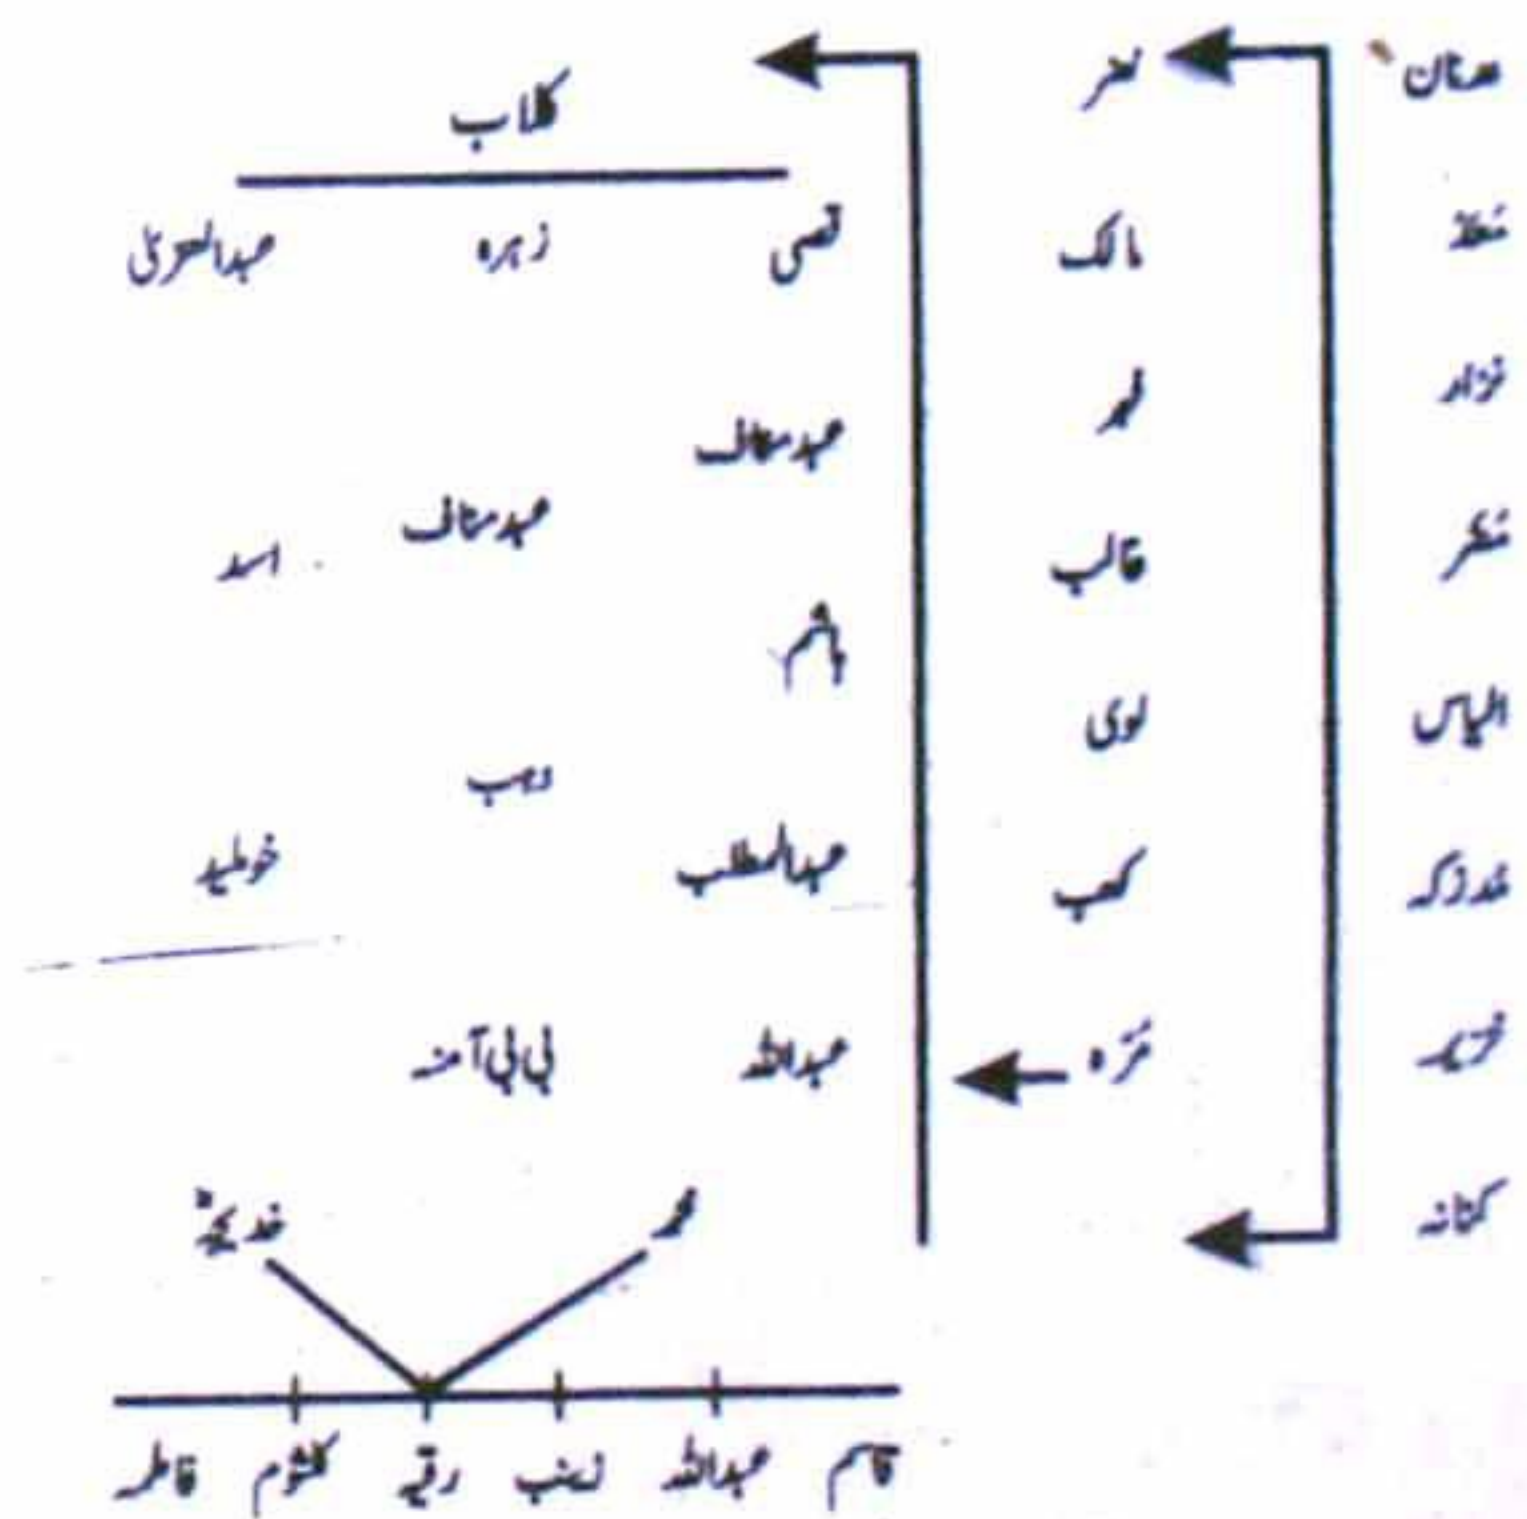 عدنان
مَعَدّ
نزار
مُضر
الیاس
مُدرکہ
خزیمہ
کنانہ
نضر
مالک
فہر
غالب
لوی
کعب
مُرّہ
کلاب
قصی زہرہ عبدالعزیٰ
عبدمناف
عبدمناف
اسد
ہاشم
وہب
عبدالمطلب
خویلید
عبداللہ بی بی آمنہ
محمد خدیجہؓ
قاسم عبداللہ زینب رقیہ کلثوم فاطمہ